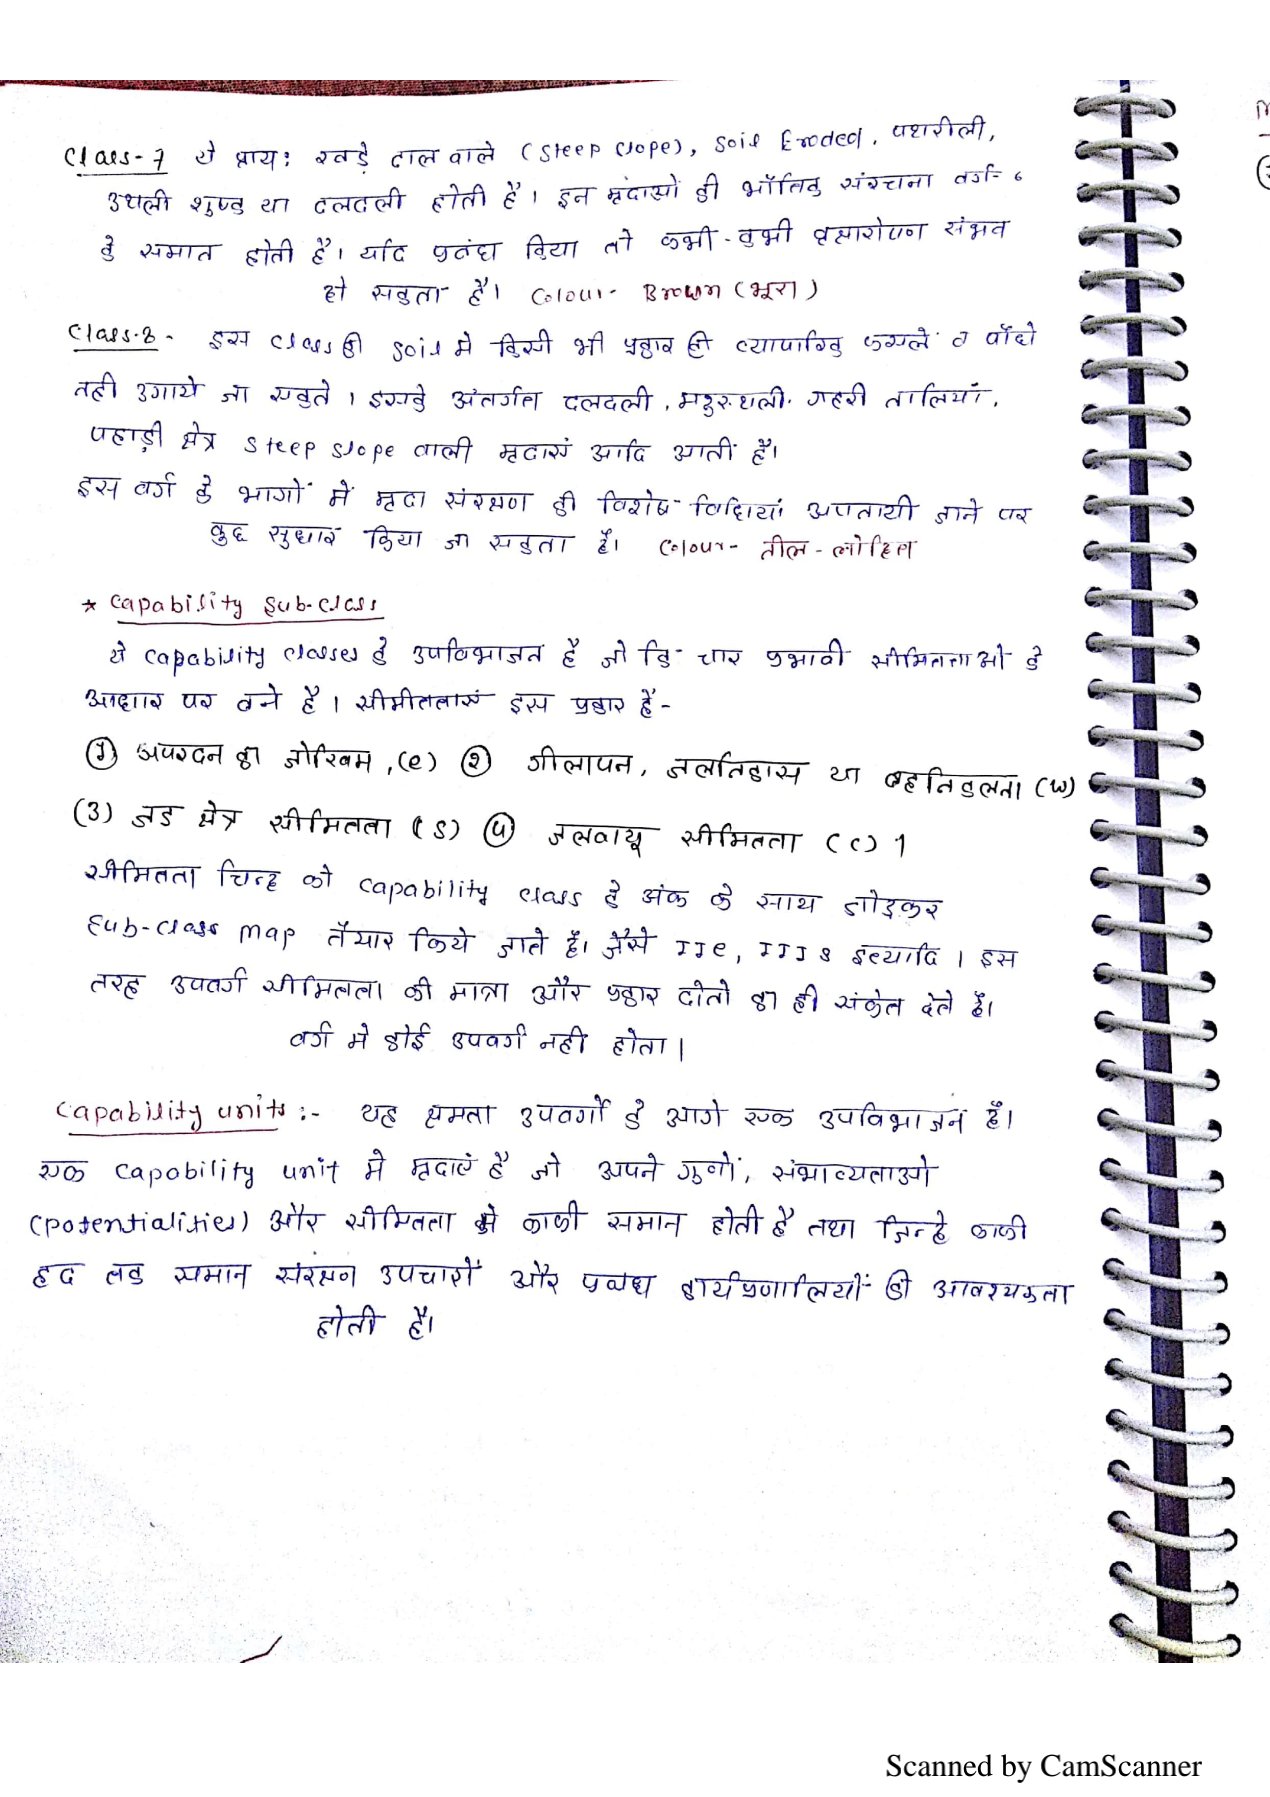 Class-7 ये प्राय: खड़े ढाल वाले (Steep Slope), Soil Eroded, पथरीली,
उथली शुष्क या दलदली होती है। इन मृदाओं की भौतिक संरचना वर्ग- 6
के समान होती है। यदि प्रबंध किया तो कभी-कभी वृक्षारोपण संभव
हो सकता है। Colour- Brown (भूरा)
Class-8- इस Class की Soil मे किसी भी प्रकार की व्यापारिक फसले व पौंदो
नही उगाये जा सकुते। इसके अंतर्गत दलदली, मरुस्थली, गहरी नालियां,
पहाड़ी क्षेत्र Steep Slope वाली मृदाएं आदि आती है।
इस वर्ग के भागों में मृदा संरक्षण की विशेष विधियां अपनायी जाने पर
कुछ सुधार किया जा सकता है। Colour- नील-लोहित
* Capability Sub-Class
ये Capability Classes के उपविभाजन है जो कि चार प्रभावी सीमितताओ के
आधार पर बने है। सीमीतताएं इस प्रकार है-
(1) अपरदन का जोखिम, (e) (2) गीलापन, जलनिकास या बहतिकलता (w)
(3) जड क्षेत्र सीमितता (S) (4) जलवायू सीमितता (C)।
सीमितता चिन्ह को Capability Class के अंक के साथ जोड़कर
Sub-Class Map तैयार किये जाते है। जैसे IIe, IIIs इत्यादि। इस
तरह उपवर्ग सीमितता की मात्रा और प्रकार दोनो का ही संकेत देते है।
वर्ग मे कोई उपवर्ग नही होता।
Capability units:- यह क्षमता उपवर्गों के आगे एक उपविभाजन है।
एक Capability unit मे मृदाएं है जो अपने गुणों, संभाव्यताओ
(Potentialities) और सीमितता मे काफी समान होती है तथा जिन्हे काफी
हद तक समान संरक्षण उपचारों और प्रबंध कार्यप्रणालियों की आवश्यकता
होती है।
Scanned by CamScanner